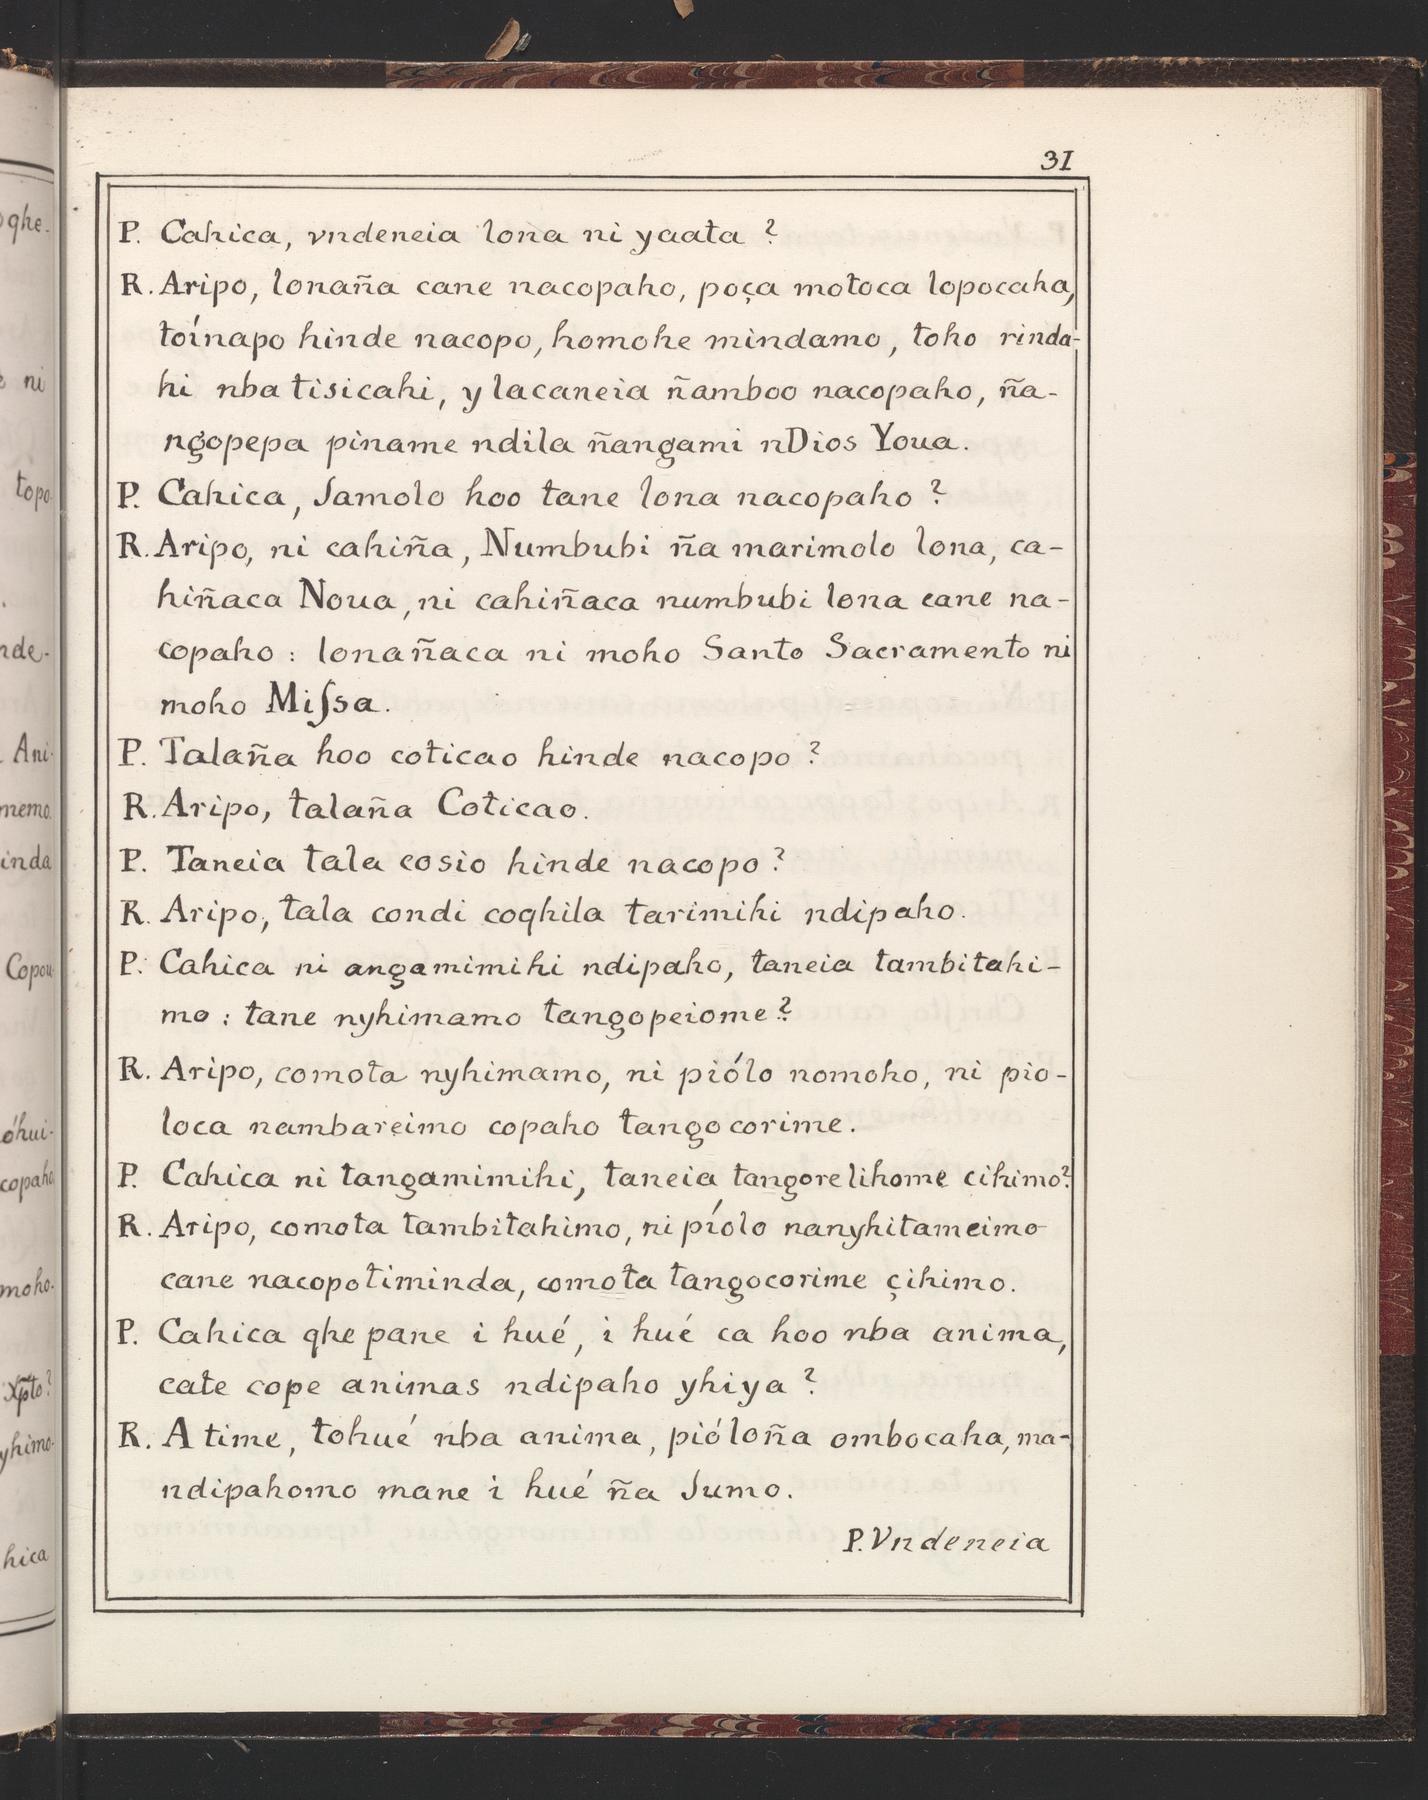 31
P. Cahica, vndeneia lona ni yaata ?
R. Aripo, lonaña cane nacopaho, poça motoca lopocaha,
toínapo hinde nacopo, homohe mindamo, toho rinda-
hi nba tisicahi, y lacaneia ñamboo nacopaho, ña-
ngopepa piname ndila ñangami nDios Youa.
P. Cahica, Samolo hoo tane lona nacopaho ?
R. Aripo, ni cahiña, Numbubi ña marimolo lona, ca-
hiñaca Noua, ni cahiñaca numbubi lona cane na-
copaho : lonañaca ni moho Santo Sacramento ni
moho Miſsa.
P. Talaña hoo coticao hinde nacopo ?
R. Aripo, talaña Coticao.
P. Taneia tala cosio hinde nacopo ?
R. Aripo, tala condi coqhila tarimihi ndipaho.
P. Cahica ni angamimihi ndipaho, taneia tambitahi-
mo : tane nyhimamo tangopeiome ?
R. Aripo, comota nyhimamo, ni piólo nomoho, ni pio-
loca nambareimo copaho tangocorime.
P. Cahica ni tangamimihi, taneia tangorelihome cihimo?
R. Aripo, comota tambitahimo, ni píolo nanyhitameimo
cane nacopotiminda, comota tangocorime çihimo.
P. Cahica qhe pane i hué, i hué ca hoo nba anima,
cate cope animas ndipaho yhiya ?
R. A time, tohué nba anima, pióloña ombocaha, ma-
ndipahomo mane i hué ña Sumo.
P. Vndeneia
oqhe-
ni
topo
nde-
Ani-
memo.
inda
Copou-
óhui-
copaho
moho.
xp̃to ?
yhimo-
hica